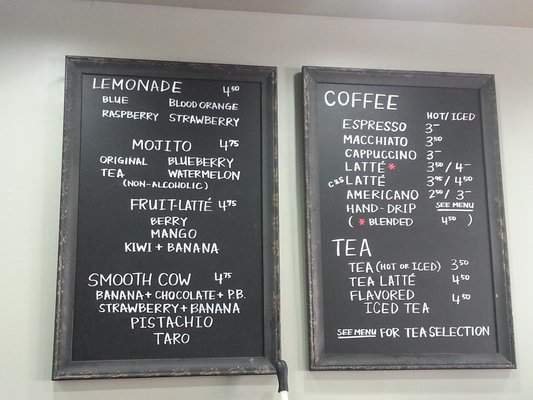 LEMONADE 4.50
BLUE BLOOD ORANGE
RASPBERRY STRAWBERRY
MOJITO 4.75
ORIGINAL BLUEBERRY
TEA WATERMELON
(NON-ALCOHOLIC)
FRUIT-LATTÉ 4.75
BERRY
MANGO
KIWI + BANANA
SMOOTH COW 4.75
BANANA + CHOCOLATE + P.B.
STRAWBERRY + BANANA
PISTACHIO
TARO
COFFEE
HOT/ICED
ESPRESSO 3–
MACCHIATO 3.50
CAPPUCCINO 3–
LATTÉ * 3.50 / 4–
LATTÉ 3.95 / 4.50
AMERICANO 2.50 / 3–
HAND-DRIP SEE MENU
( * BLENDED 4.50 )
TEA
TEA (HOT OR ICED) 3.50
TEA LATTÉ 4.50
FLAVORED
ICED TEA 4.50
SEE MENU FOR TEA SELECTION